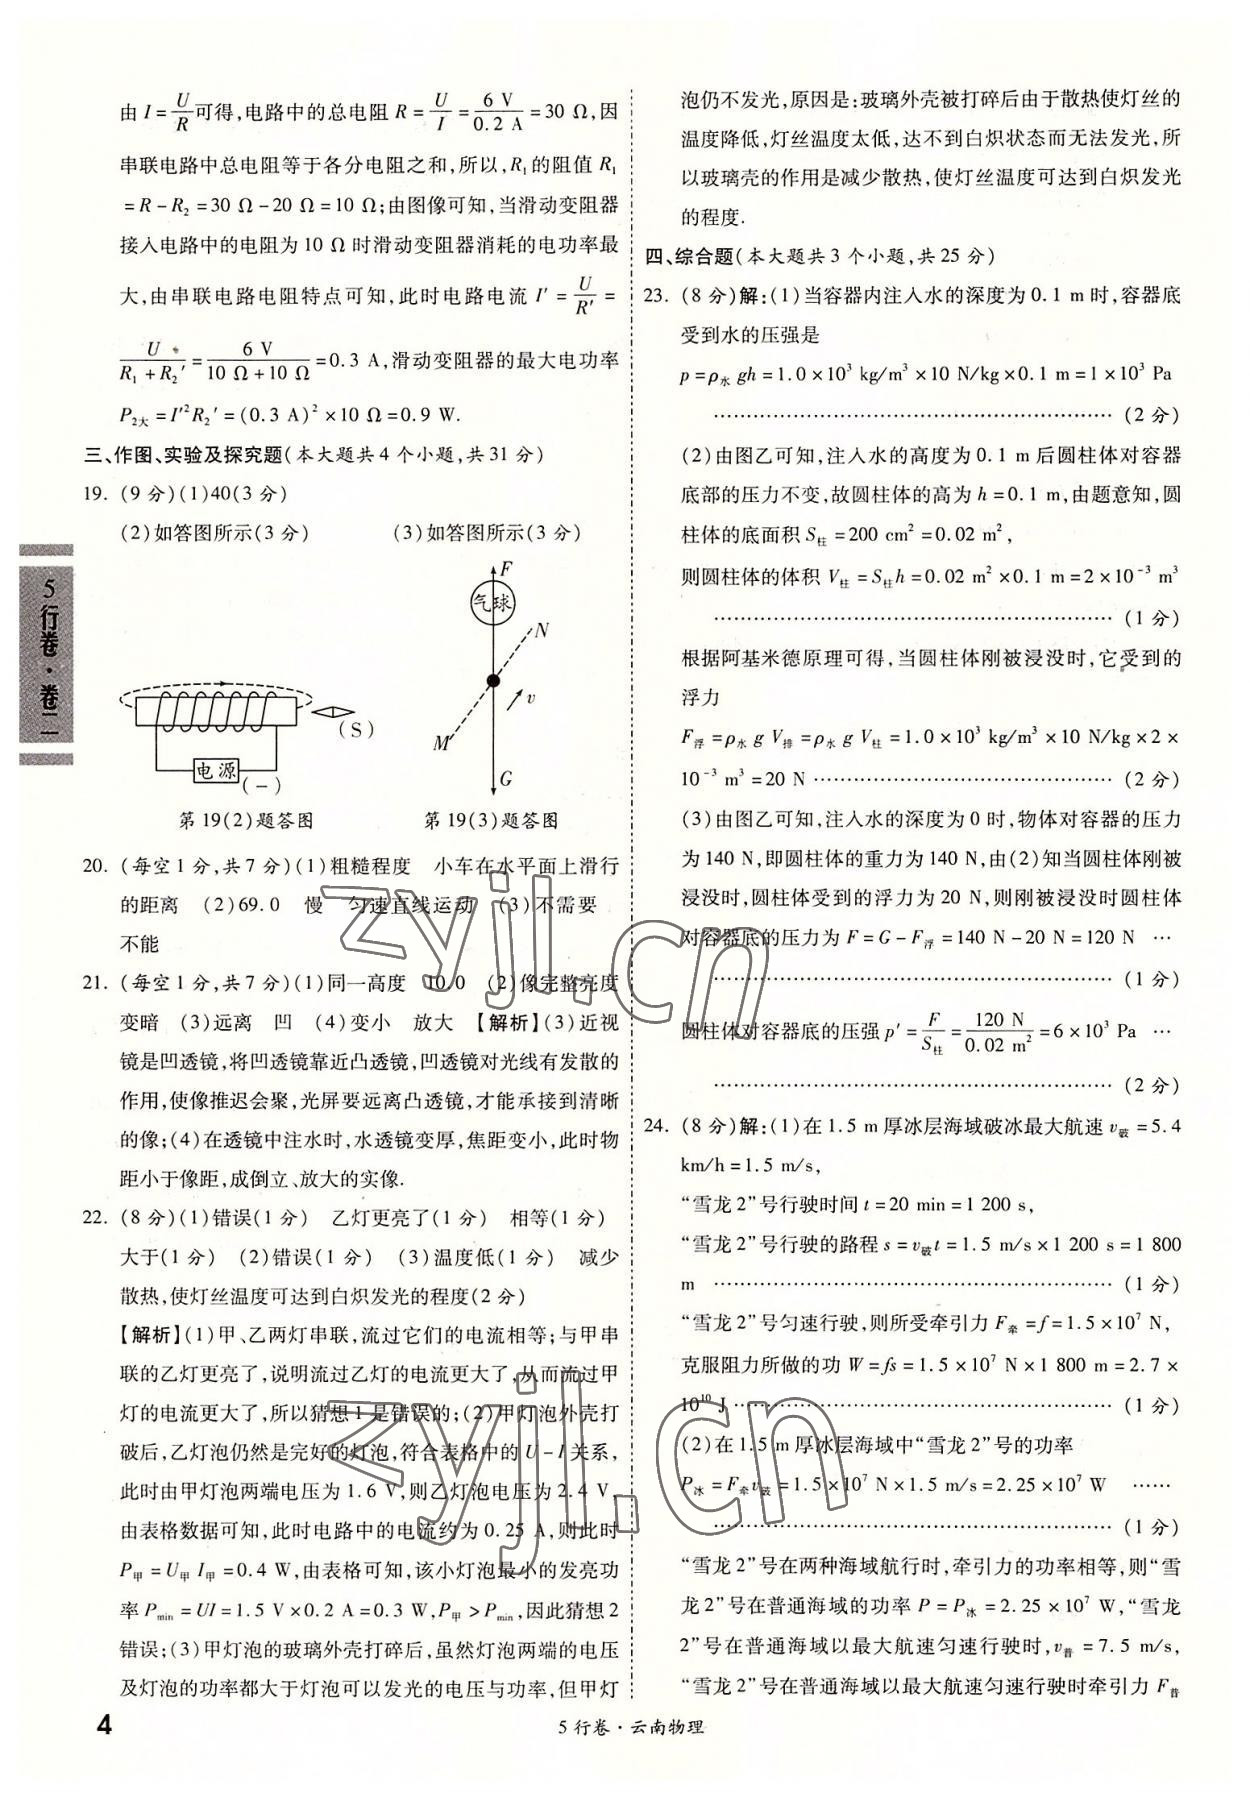 由 I = U/R 可得,电路中的总电阻 R = U/I = 6 V/0.2 A = 30 Ω,因
串联电路中总电阻等于各分电阻之和,所以,R₁的阻值 R₁
= R - R₂ = 30 Ω - 20 Ω = 10 Ω;由图像可知,当滑动变阻器
接入电路中的电阻为 10 Ω 时滑动变阻器消耗的电功率最
大,由串联电路电阻特点可知,此时电路电流 I′ = U/R′ =
U/(R₁ + R₂′) = 6 V/(10 Ω + 10 Ω) = 0.3 A,滑动变阻器的最大电功率
P₂大 = I′²R₂′ = (0.3 A)² × 10 Ω = 0.9 W.
三、作图、实验及探究题(本大题共 4 个小题,共 31 分)
19. (9 分)(1)40(3 分)
(2)如答图所示(3 分) (3)如答图所示(3 分)
F
气球
N
v
M
(S)
电源
(-)
G
第 19(2)题答图 第 19(3)题答图
20. (每空 1 分,共 7 分)(1)粗糙程度 小车在水平面上滑行
的距离 (2)69.0 慢 匀速直线运动 (3)不需要
不能
21. (每空 1 分,共 7 分)(1)同一高度 10.0 (2)像完整亮度
变暗 (3)远离 凹 (4)变小 放大 【解析】(3)近视
镜是凹透镜,将凹透镜靠近凸透镜,凹透镜对光线有发散的
作用,使像推迟会聚,光屏要远离凸透镜,才能承接到清晰
的像;(4)在透镜中注水时,水透镜变厚,焦距变小,此时物
距小于像距,成倒立、放大的实像.
22. (8 分)(1)错误(1 分) 乙灯更亮了(1 分) 相等(1 分)
大于(1 分) (2)错误(1 分) (3)温度低(1 分) 减少
散热,使灯丝温度可达到白炽发光的程度(2 分)
【解析】(1)甲、乙两灯串联,流过它们的电流相等;与甲串
联的乙灯更亮了,说明流过乙灯的电流更大了,从而流过甲
灯的电流更大了,所以猜想 1 是错误的;(2)甲灯泡外壳打
破后,乙灯泡仍然是完好的灯泡,符合表格中的 U - I 关系,
此时由甲灯泡两端电压为 1.6 V,则乙灯泡电压为 2.4 V,
由表格数据可知,此时电路中的电流约为 0.25 A,则此时
P甲 = U甲 I甲 = 0.4 W,由表格可知,该小灯泡最小的发亮功
率 Pmin = UI = 1.5 V × 0.2 A = 0.3 W,P甲 > Pmin,因此猜想 2
错误;(3)甲灯泡的玻璃外壳打碎后,虽然灯泡两端的电压
及灯泡的功率都大于灯泡可以发光的电压与功率,但甲灯
泡仍不发光,原因是:玻璃外壳被打碎后由于散热使灯丝的
温度降低,灯丝温度太低,达不到白炽状态而无法发光,所
以玻璃壳的作用是减少散热,使灯丝温度可达到白炽发光
的程度.
四、综合题(本大题共 3 个小题,共 25 分)
23. (8 分)解:(1)当容器内注入水的深度为 0.1 m 时,容器底
受到水的压强是
p = ρ水 gh = 1.0 × 10³ kg/m³ × 10 N/kg × 0.1 m = 1 × 10³ Pa
…………………………………………………… (2 分)
(2)由图乙可知,注入水的高度为 0.1 m 后圆柱体对容器
底部的压力不变,故圆柱体的高为 h = 0.1 m,由题意知,圆
柱体的底面积 S柱 = 200 cm² = 0.02 m²,
则圆柱体的体积 V柱 = S柱h = 0.02 m² × 0.1 m = 2 × 10⁻³ m³
…………………………………………………… (1 分)
根据阿基米德原理可得,当圆柱体刚被浸没时,它受到的
浮力
F浮 = ρ水 g V排 = ρ水 g V柱 = 1.0 × 10³ kg/m³ × 10 N/kg × 2 ×
10⁻³ m³ = 20 N ……………………………………… (2 分)
(3)由图乙可知,注入水的深度为 0 时,物体对容器的压力
为 140 N,即圆柱体的重力为 140 N,由(2)知当圆柱体刚被
浸没时,圆柱体受到的浮力为 20 N,则刚被浸没时圆柱体
对容器底的压力为 F = G - F浮 = 140 N - 20 N = 120 N …
…………………………………………………… (1 分)
圆柱体对容器底的压强 p′ = F/S柱 = 120 N/0.02 m² = 6 × 10³ Pa …
…………………………………………………… (2 分)
24. (8 分)解:(1)在 1.5 m 厚冰层海域破冰最大航速 v破 = 5.4
km/h = 1.5 m/s,
“雪龙 2”号行驶时间 t = 20 min = 1 200 s,
“雪龙 2”号行驶的路程 s = v破t = 1.5 m/s × 1 200 s = 1 800
m …………………………………………………… (1 分)
“雪龙 2”号匀速行驶,则所受牵引力 F牵 = f = 1.5 × 10⁷ N,
克服阻力所做的功 W = fs = 1.5 × 10⁷ N × 1 800 m = 2.7 ×
10¹⁰ J ………………………………………………… (1 分)
(2)在 1.5 m 厚冰层海域中“雪龙 2”号的功率
P冰 = F牵v破 = 1.5 × 10⁷ N × 1.5 m/s = 2.25 × 10⁷ W ……
…………………………………………………… (1 分)
“雪龙 2”号在两种海域航行时,牵引力的功率相等,则“雪
龙 2”号在普通海域的功率 P = P冰 = 2.25 × 10⁷ W,“雪龙
2”号在普通海域以最大航速匀速行驶时,v普 = 7.5 m/s,
“雪龙 2”号在普通海域以最大航速匀速行驶时牵引力 F普
5行卷·卷二
4
5 行卷·云南物理
zyjl.cn
zyjl.cn